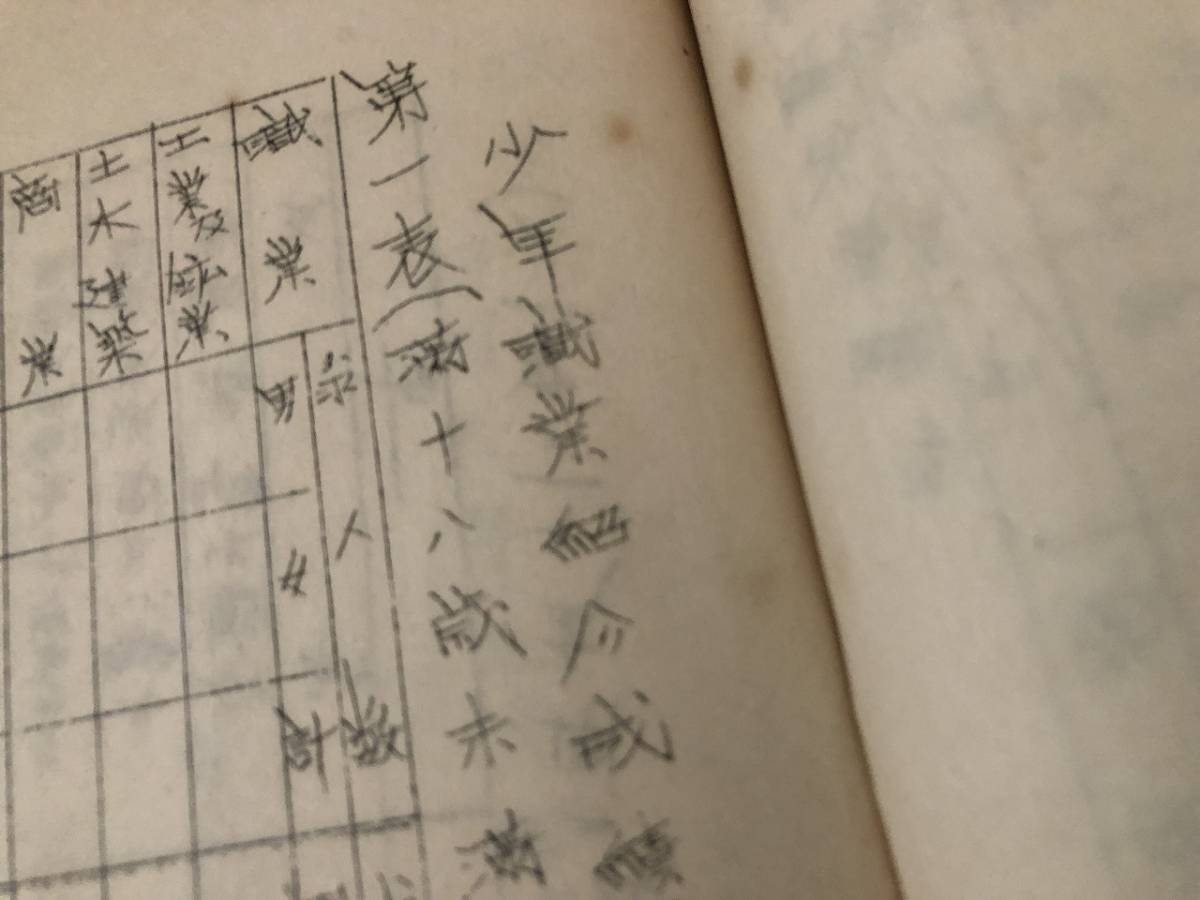 少年職業紹介成績
第一表(満十八歳未満
職業
求人数
男
女
計
工業及鉱業
土木建築
商業